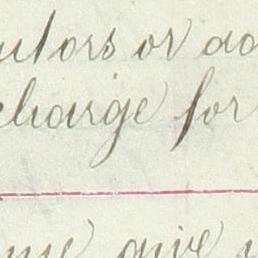 utors or ad
charge for
me give